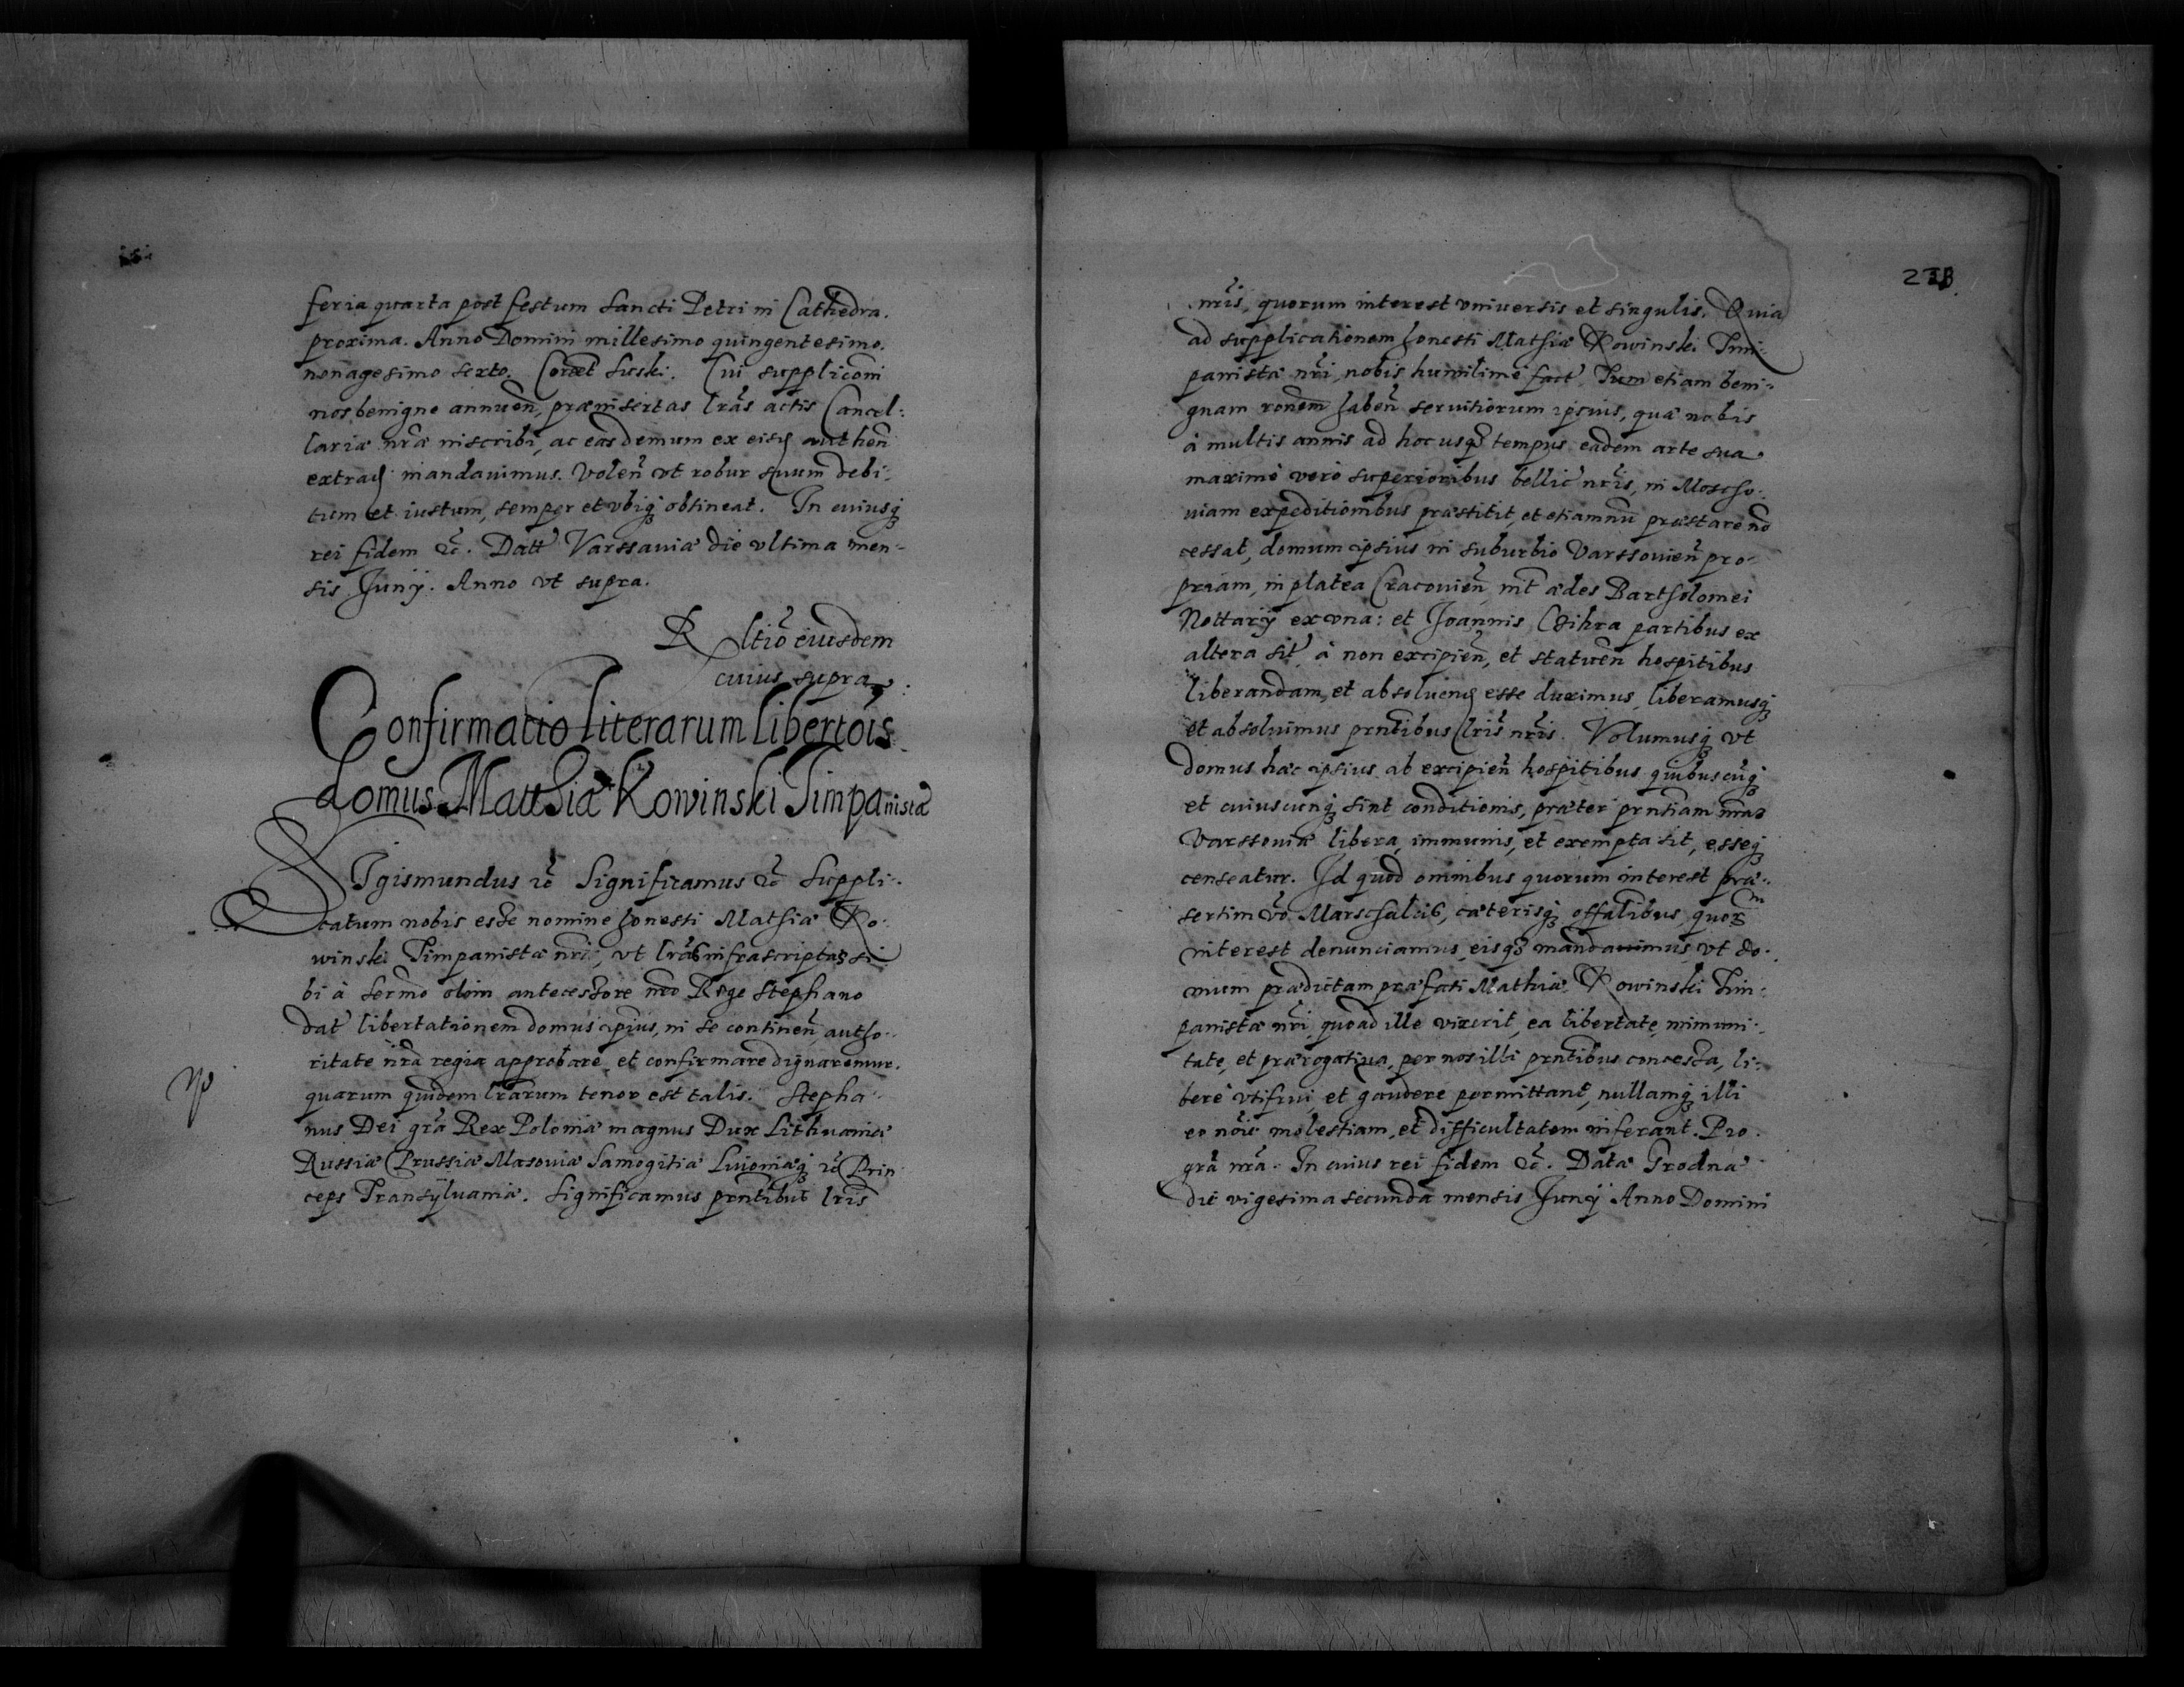 feria quarta post festum Sancti Petri in Cathedra.
proxima. Anno Domini millesimo quingentesimo.
nonagesimo sexto. Suski. Cui supplicõni
nos benigne annueñ, præinsertas lrãs actis Cancel:
lariæ nrã inscribi, ac eas demum ex eisd authen
extradi mandauimus. Voleñ vt robur suum debi-
tum et iustum, semper et vbiq obtineat. In cuiusq
rei fidem &c. Datt Varssauiæ die vltima men-
sis Junÿ. Anno vt supra.
R ltiõ eiusdem
cuius supra
Confirmatio literarum libertõis
domus Matthiæ Kowinski Timpanistæ
SIgismundus &c Significamus &c Suppli-
catum nobis esse nomine honesti Mathiæ Ko-
winski Timpanistæ nri, vt lrãs infrascriptas si
bi à sermo olim antecessore nro Rege Stephano
dat libertationem domus ipsius, in se contineñ, autho-
ritate nrã regia approbare, et confirmare dignaremur.
quarum quidem lrarum tenor est talis. Stepha-
nus Dei grã Rex Poloniæ magnus Dux Lithuaniæ
Russiæ Prussiæ Masouiæ Samogitiæ Liuoniæq &c Prin
ceps Transÿluaniæ. Significamus prntibus lris
nris, quorum interest vniuersis et singulis. Quia
ad supplicationem honesti Mathiæ Kowinski Tim-
panistæ nri, nobis humilime fact. Tum etiam beni-
gnam ronem habeñ seruitiorum ipsius, quæ nobis
à multis annis ad hoc usq tempus eadem arte sua
maxime verò superioribus bellic nris, in Moscho-
uiam expeditionibus præstitit, et etiamnũ præstare nõ
cessat, domum ipsius in suburbio Varssouieñ pro-
priam, in platea Cracouieñ, int ædes Bartholomei
Nottarÿ ex vna: et Joannis Czihra partibus ex
altera sit, à non excipieñ, et statueñ hospitibus
liberandam, et absoluend esse duximus, liberamusq
et absoluimus prntibus lris nris. Volumusq vt
domus hæc ipsius ab excipieñ hospitibus quibuscũq
et cuiuscunq sint conditionis, præter prntiam nram
Varssouiæ libera, immunis, et exempta sit, esseq
censeatur. Id quod omnibus quorum interest præ-
sertim vo Marschalcis, cæterisq offalibus, quor m
interest denunciamus, eisq mandauimus, vt do-
mum prædictam præfati Mathiæ Kowinski Tim-
panistæ nri, quoad ille vixerit, ea libertate, immuni-
tate, et prærogatiua, per nos illi prntibus concessa, li-
berè vti frui, et gaudere permittant, nullamq illi
eo noie molestiam, et difficultatem inferant. Pro
grã nrã. In cuius rei fidem &c. Datæ Grodnæ
die vigesima secunda mensis Junÿ Anno Domini